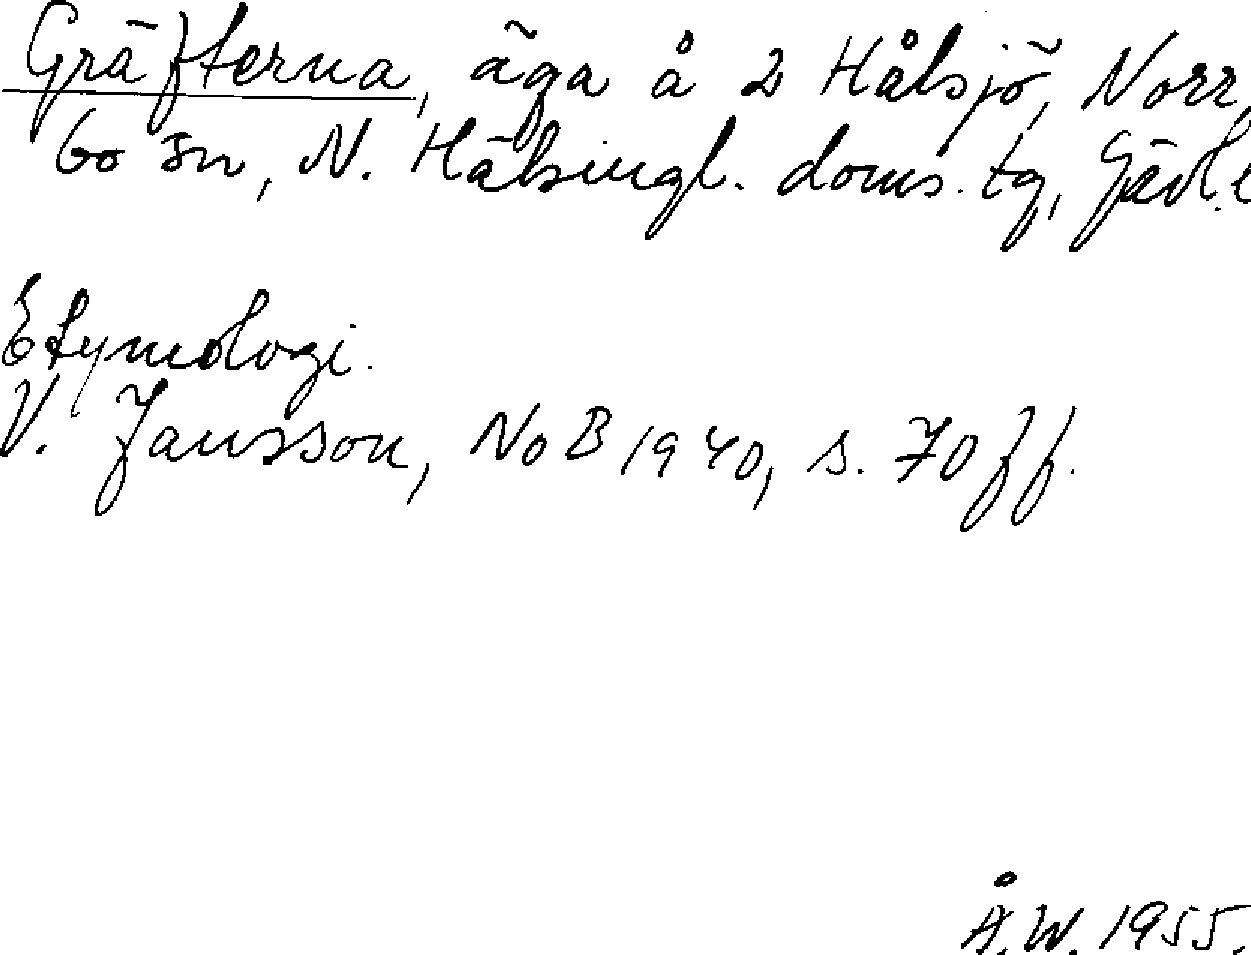 Gräfterna, äga å 2 Hålsjö, Norr,
bo sn, N. Hälsingl. doms. tg, Gävl. l
Etymologi.
V. Jansson, NoB 1940, s. 70 ff.
Å.W. 1955.